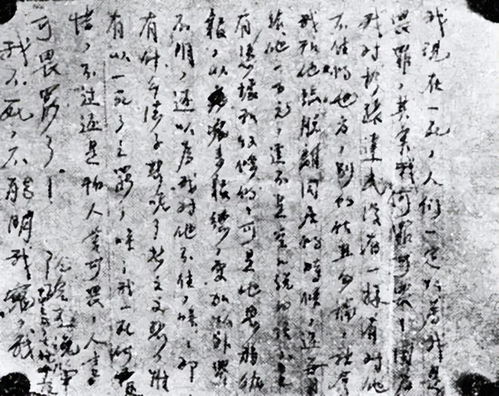 我現在一死,人們一定以為我是
畏罪,其實我何罪可畏,因為
我對於張達民沒有一樣有對他
不住的地方,別的姑且勿論,就拿
我和他臨脫離同居的時候,還每月
給他一百元,這不是空口說的話,是
有憑據和收條的,可是他恩將仇
報,以冤來報德,更加以外界
不明,還以為我對他不住,唉,那
有什麼法子想呢,想之又想,惟
有以一死了之罷,唉,我一死何足
惜,不過還是怕人言可畏,人言
可畏罷了!
阮玲玉絕筆
我不死,不能明我冤,我